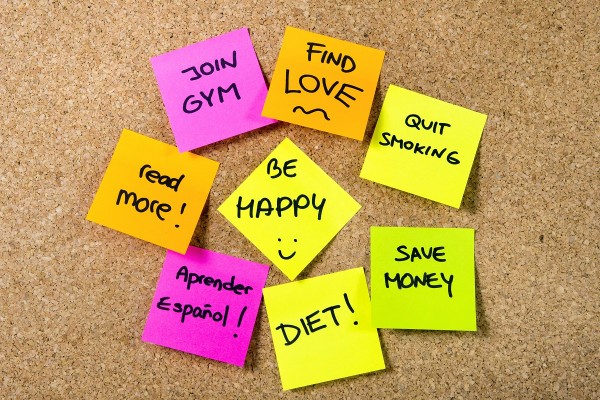 JOIN
GYM
FIND
LOVE
QUIT
SMOKING
read
more!
BE
HAPPY
SAVE
MONEY
Aprender
Español!
DIET!